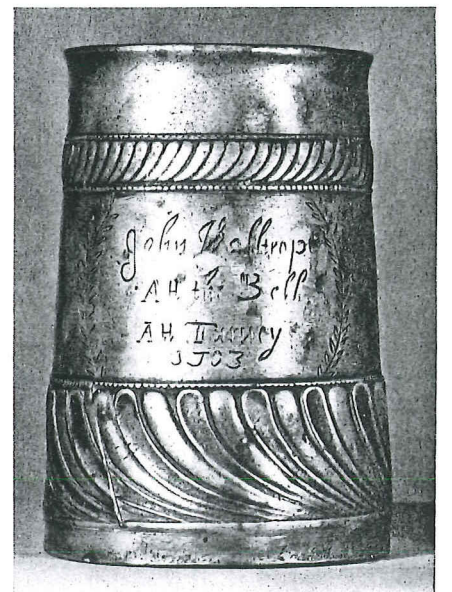 John Waltrop
At the Bell
At Putney
1703